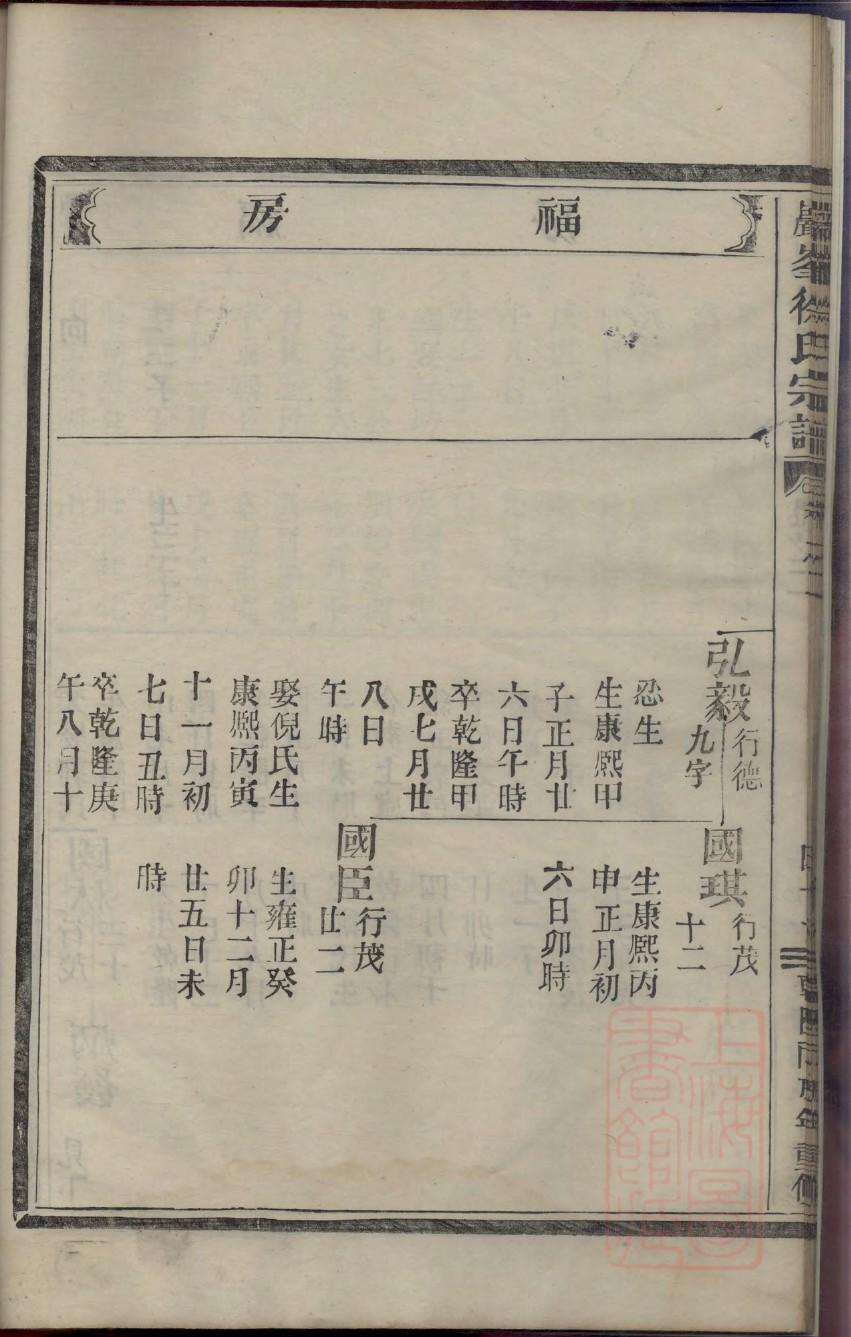 巖峯徐氏宗譜
民國丙辰年重修
福房
弘毅行德
九字
忍生
生康熙甲
子正月廿
六日午時
卒乾隆甲
戌七月廿
八日
午時
娶倪氏生
康熙丙寅
十一月初
七日丑時
卒乾隆庚
午八月十
國琪行茂
十二
生康熙丙
申正月初
六日卯時
國臣行茂
廿二
生雍正癸
卯十二月
廿五日未
時
上海圖書館藏